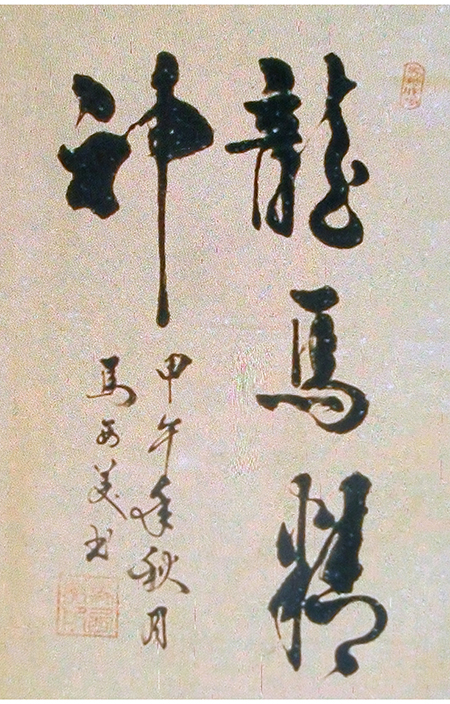 龍馬精
神
甲午年秋月
馬美书